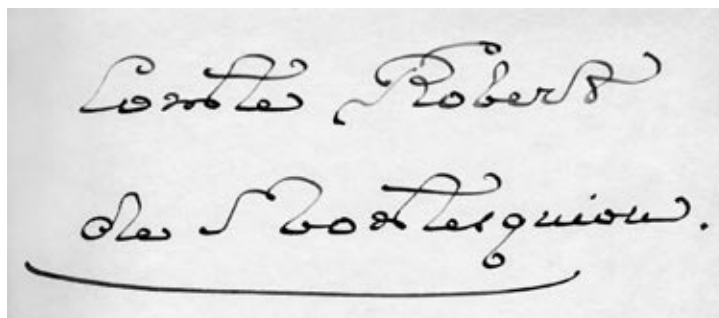 Comte Robert
de Montesquiou.